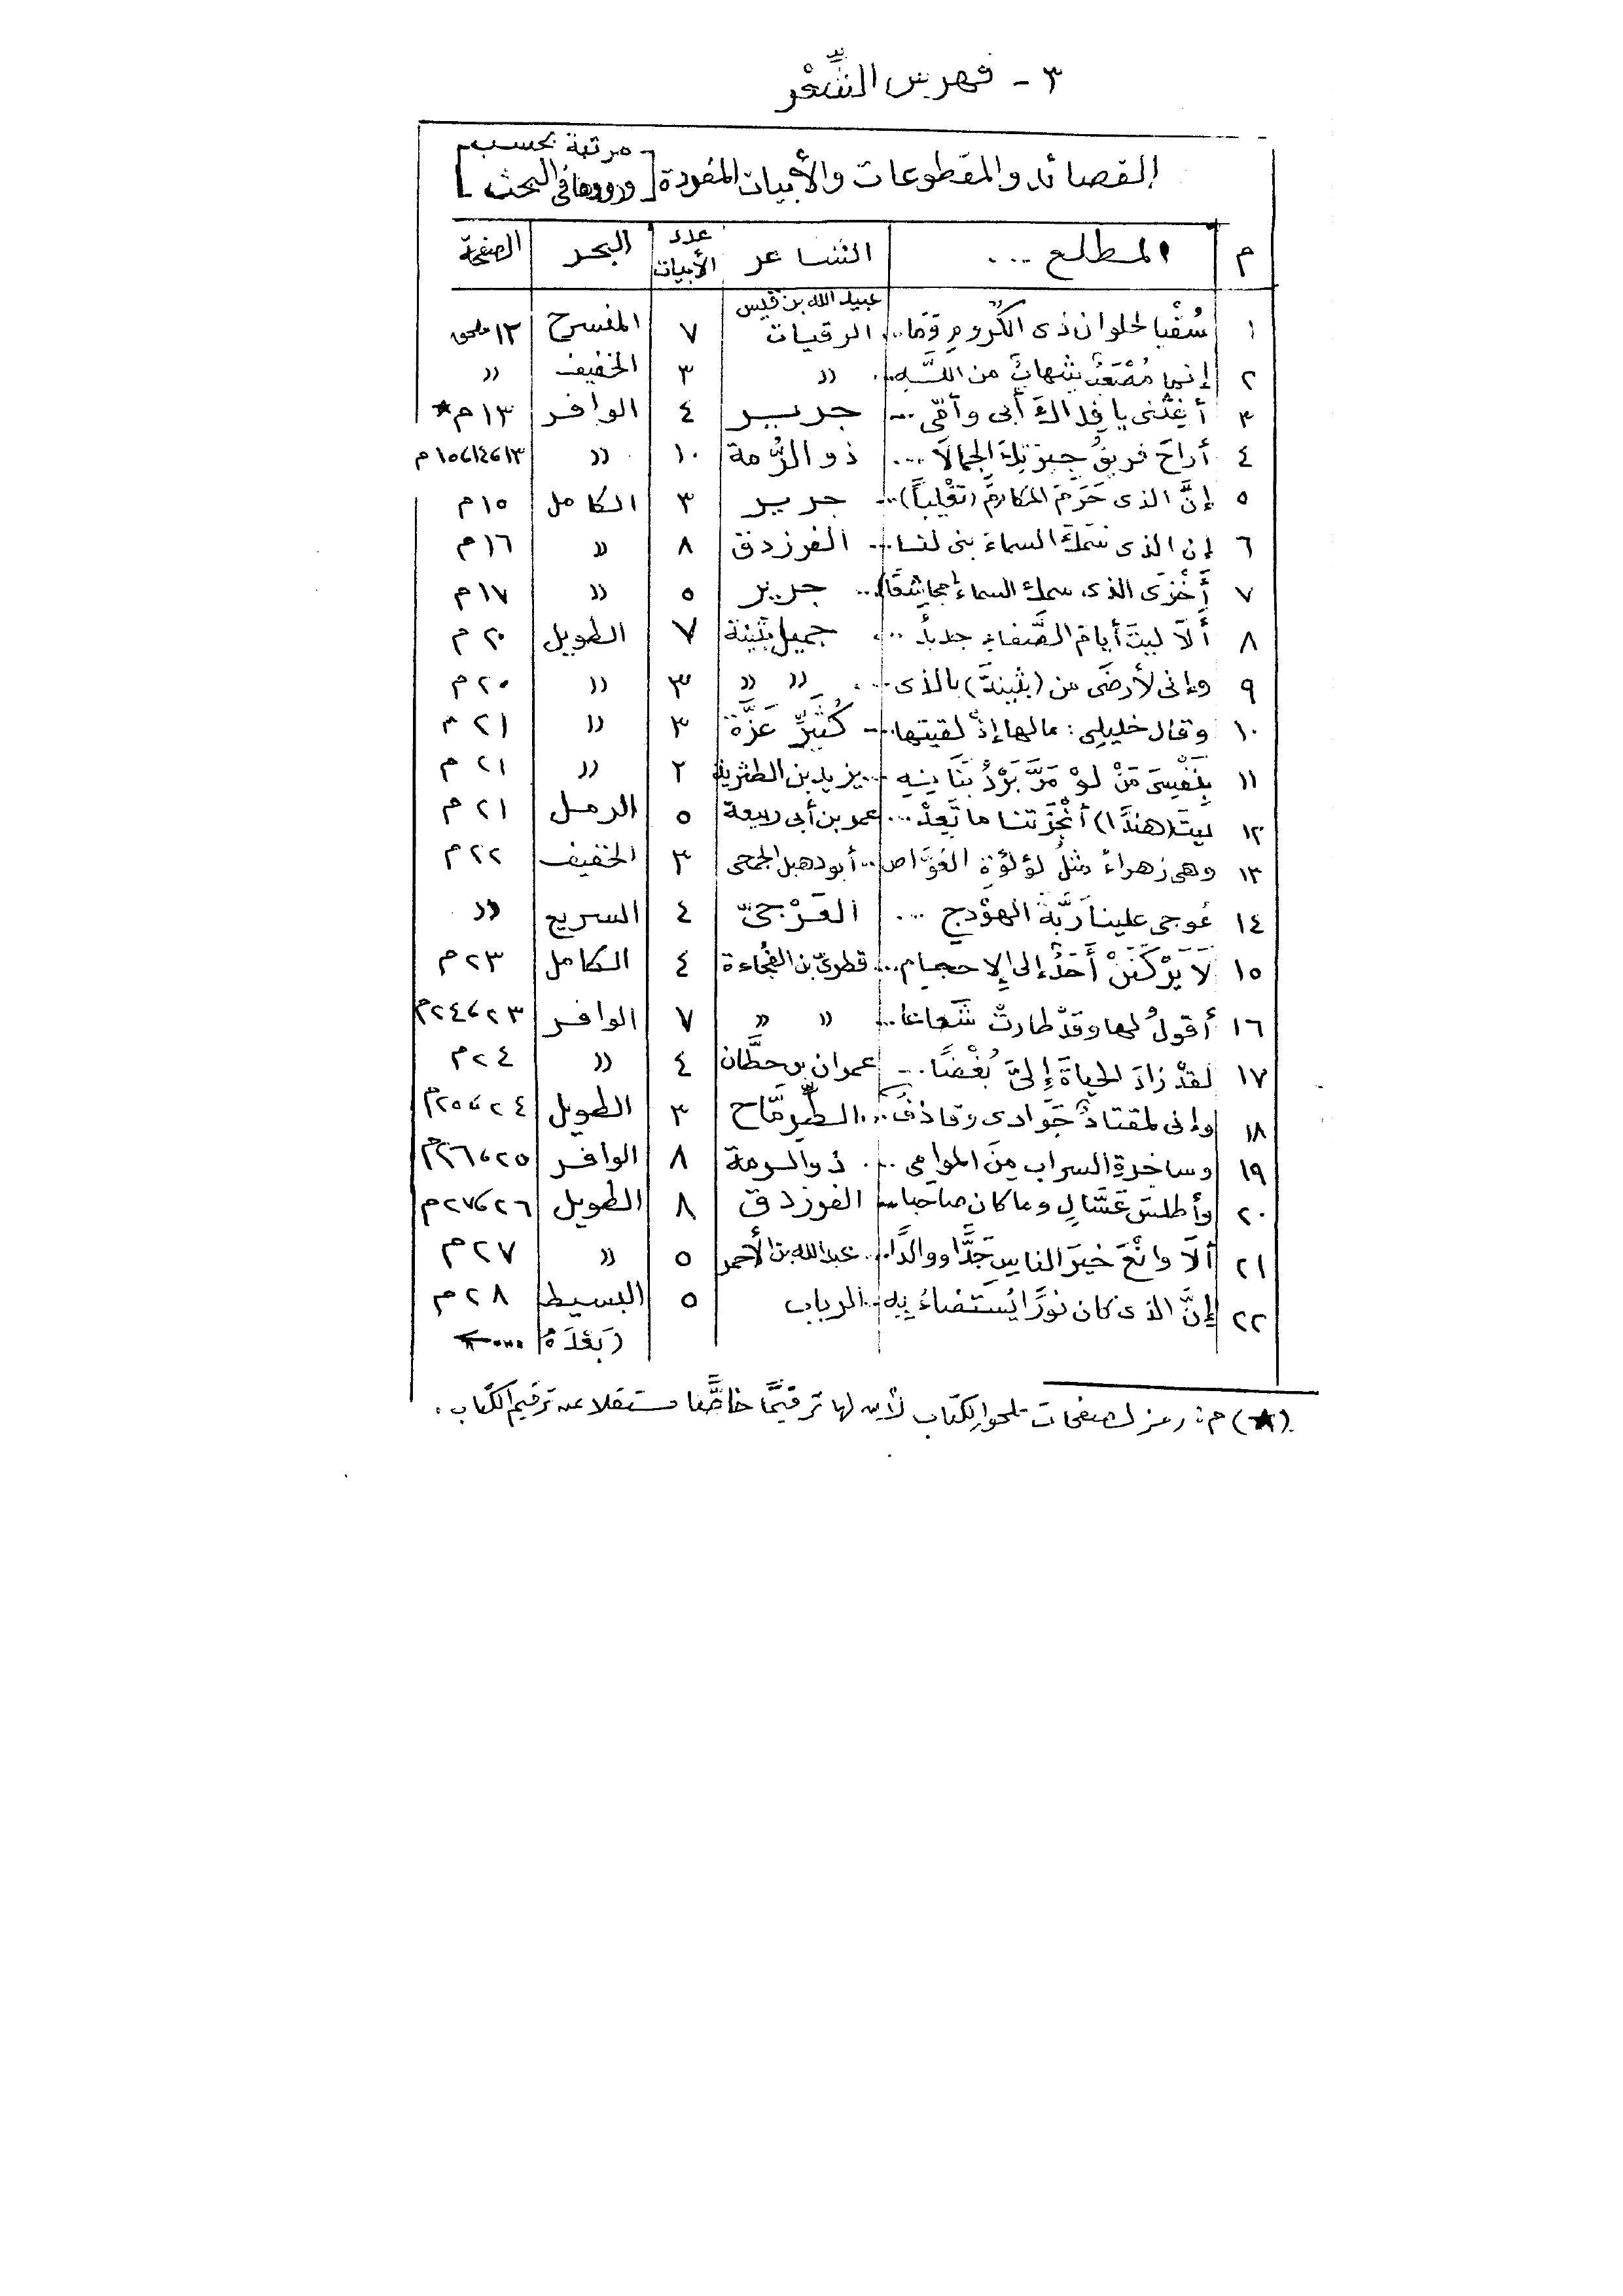 ٣ - فهرس الشِّعْر
القصائد والمقطوعات والأبيات المفردة [مرتبة بحسب ورودها في البحث]
م | المطلع ... | الشاعر | عدد الأبيات | البحر | الصفحة
١ | سُقْيا لحلوان ذى الكُروم وما... | عبيد الله بن قيس الرقيات | ٧ | المنسرح | ١٢ ملحق
٢ | إنما مُصْعَبٌ شهابٌ من اللَّـه... | " | ٣ | الخفيف | "
٣ | أغِثْنى يا فداك أبى وأمِّى ... | جرير | ٤ | الوافر | ١٣ م★
٤ | أراحَ فريقُ جيرتِكَ الجمالَا ... | ذو الرُّمة | ١٠ | " | ١٣، ١٤، ١٥ م
٥ | إنَّ الذى حَرَمَ المكارمَ (تغْلِبًا)... | جرير | ٣ | الكامل | ١٥ م
٦ | إن الذى سَمَكَ السماءَ بنى لنا... | الفرزدق | ٨ | " | ١٦ م
٧ | أَخْزَى الذى سمك السماءَ (مجاشعًا)... | جرير | ٥ | " | ١٧ م
٨ | أَلَا ليتَ أيامَ الصَّفاءِ جديدُ ... | جميل بثينة | ٧ | الطويل | ٢٠ م
٩ | وإنى لأرضَى من (بثينةَ) بالذى ... | " " | ٣ | " | ٢٠ م
١٠ | وقال خليلِى: مالها إذْ لقيتها... | كُثَيِّر عَزَّة | ٣ | " | ٢١ م
١١ | بِنَفْسِىَ مَنْ لوْ مَرَّ بَرْدُ بَنَانِهِ ... | يزيد بن الطثرية | ٢ | " | ٢١ م
١٢ | ليتَ (هندًا) أنْجَزَتنا ما تَعِدْ... | عمر بن أبى ربيعة | ٥ | الرمل | ٢١ م
١٣ | وهى زهراءُ مثلُ لؤلؤةِ الغَوَّاص... | أبو دهبل الجمحى | ٣ | الخفيف | ٢٢ م
١٤ | عُوجى علينا رَبَّةَ الهوْدجِ ... | العَرْجىّ | ٤ | السريع | "
١٥ | لَا يَرْكَنَنْ أَحَدٌ إلى الإحجام... | قطرىّ بن الفُجاءة | ٤ | الكامل | ٢٣ م
١٦ | أقولُ لها وقدْ طارتْ شَعاعا... | " " | ٧ | الوافر | ٢٣، ٢٤ م
١٧ | لقدْ زادَ الحياةَ إِلىَّ بُغْضًا... | عمران بن حطَّان | ٤ | " | ٢٤ م
١٨ | وإنى لمقتادٌ جَوادى وقاذفٌ... | الطِّرِمَّاح | ٣ | الطويل | ٢٤، ٢٥ م
١٩ | وساخرةِ السراب مِنَ الموامى ... | ذو الرمة | ٨ | الوافر | ٢٥، ٢٦ م
٢٠ | وأطلسَ عَسَّالٍ وما كان صاحبا... | الفرزدق | ٨ | الطويل | ٢٦، ٢٧ م
٢١ | ألَا وانْعَ خيرَ الناسِ جَدًّا ووالدًا... | عبدالله بن الأحمر | ٥ | " | ٢٧ م
٢٢ | إنَّ الذى كان نورًا يُستضاءُ بِهِ... | الرباب | ٥ | البسيط | ٢٨ م
(بَعْدَهُ .... ←
(★) م: رمز لصفحات ملحق الكتاب لأن لها ترقيمًا خاصًّا مستقلا عن ترقيم الكتاب.